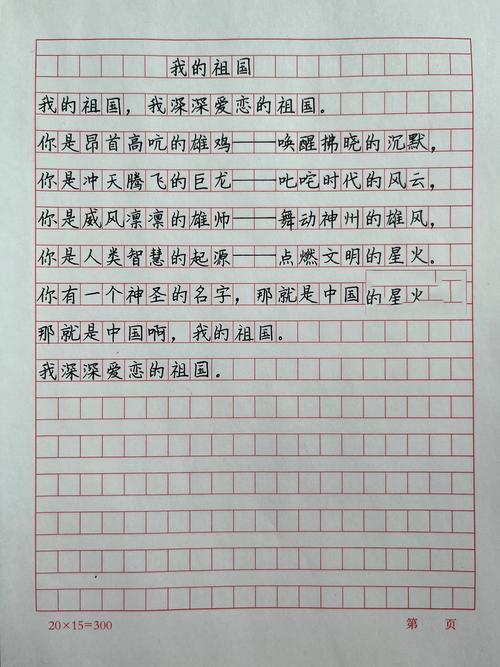 我的祖国
我的祖国，我深深爱恋的祖国。
你是昂首高吭的雄鸡——唤醒拂晓的沉默，
你是冲天腾飞的巨龙——叱咤时代的风云，
你是威风凛凛的雄师——舞动神州的雄风，
你是人类智慧的起源——点燃文明的星火。
你有一个神圣的名字，那就是中国的星火
那就是中国啊，我的祖国。
我深深爱恋的祖国．
20×15=300 第 页